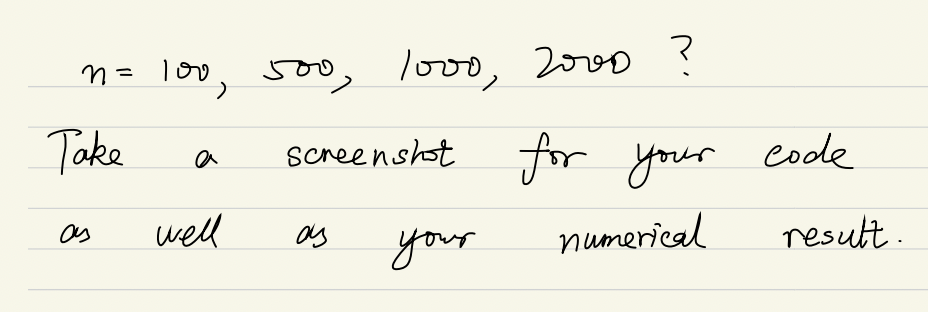 n = 100, 500, 1000, 2000 ?
Take a screenshot for your code
as well as your numerical result.